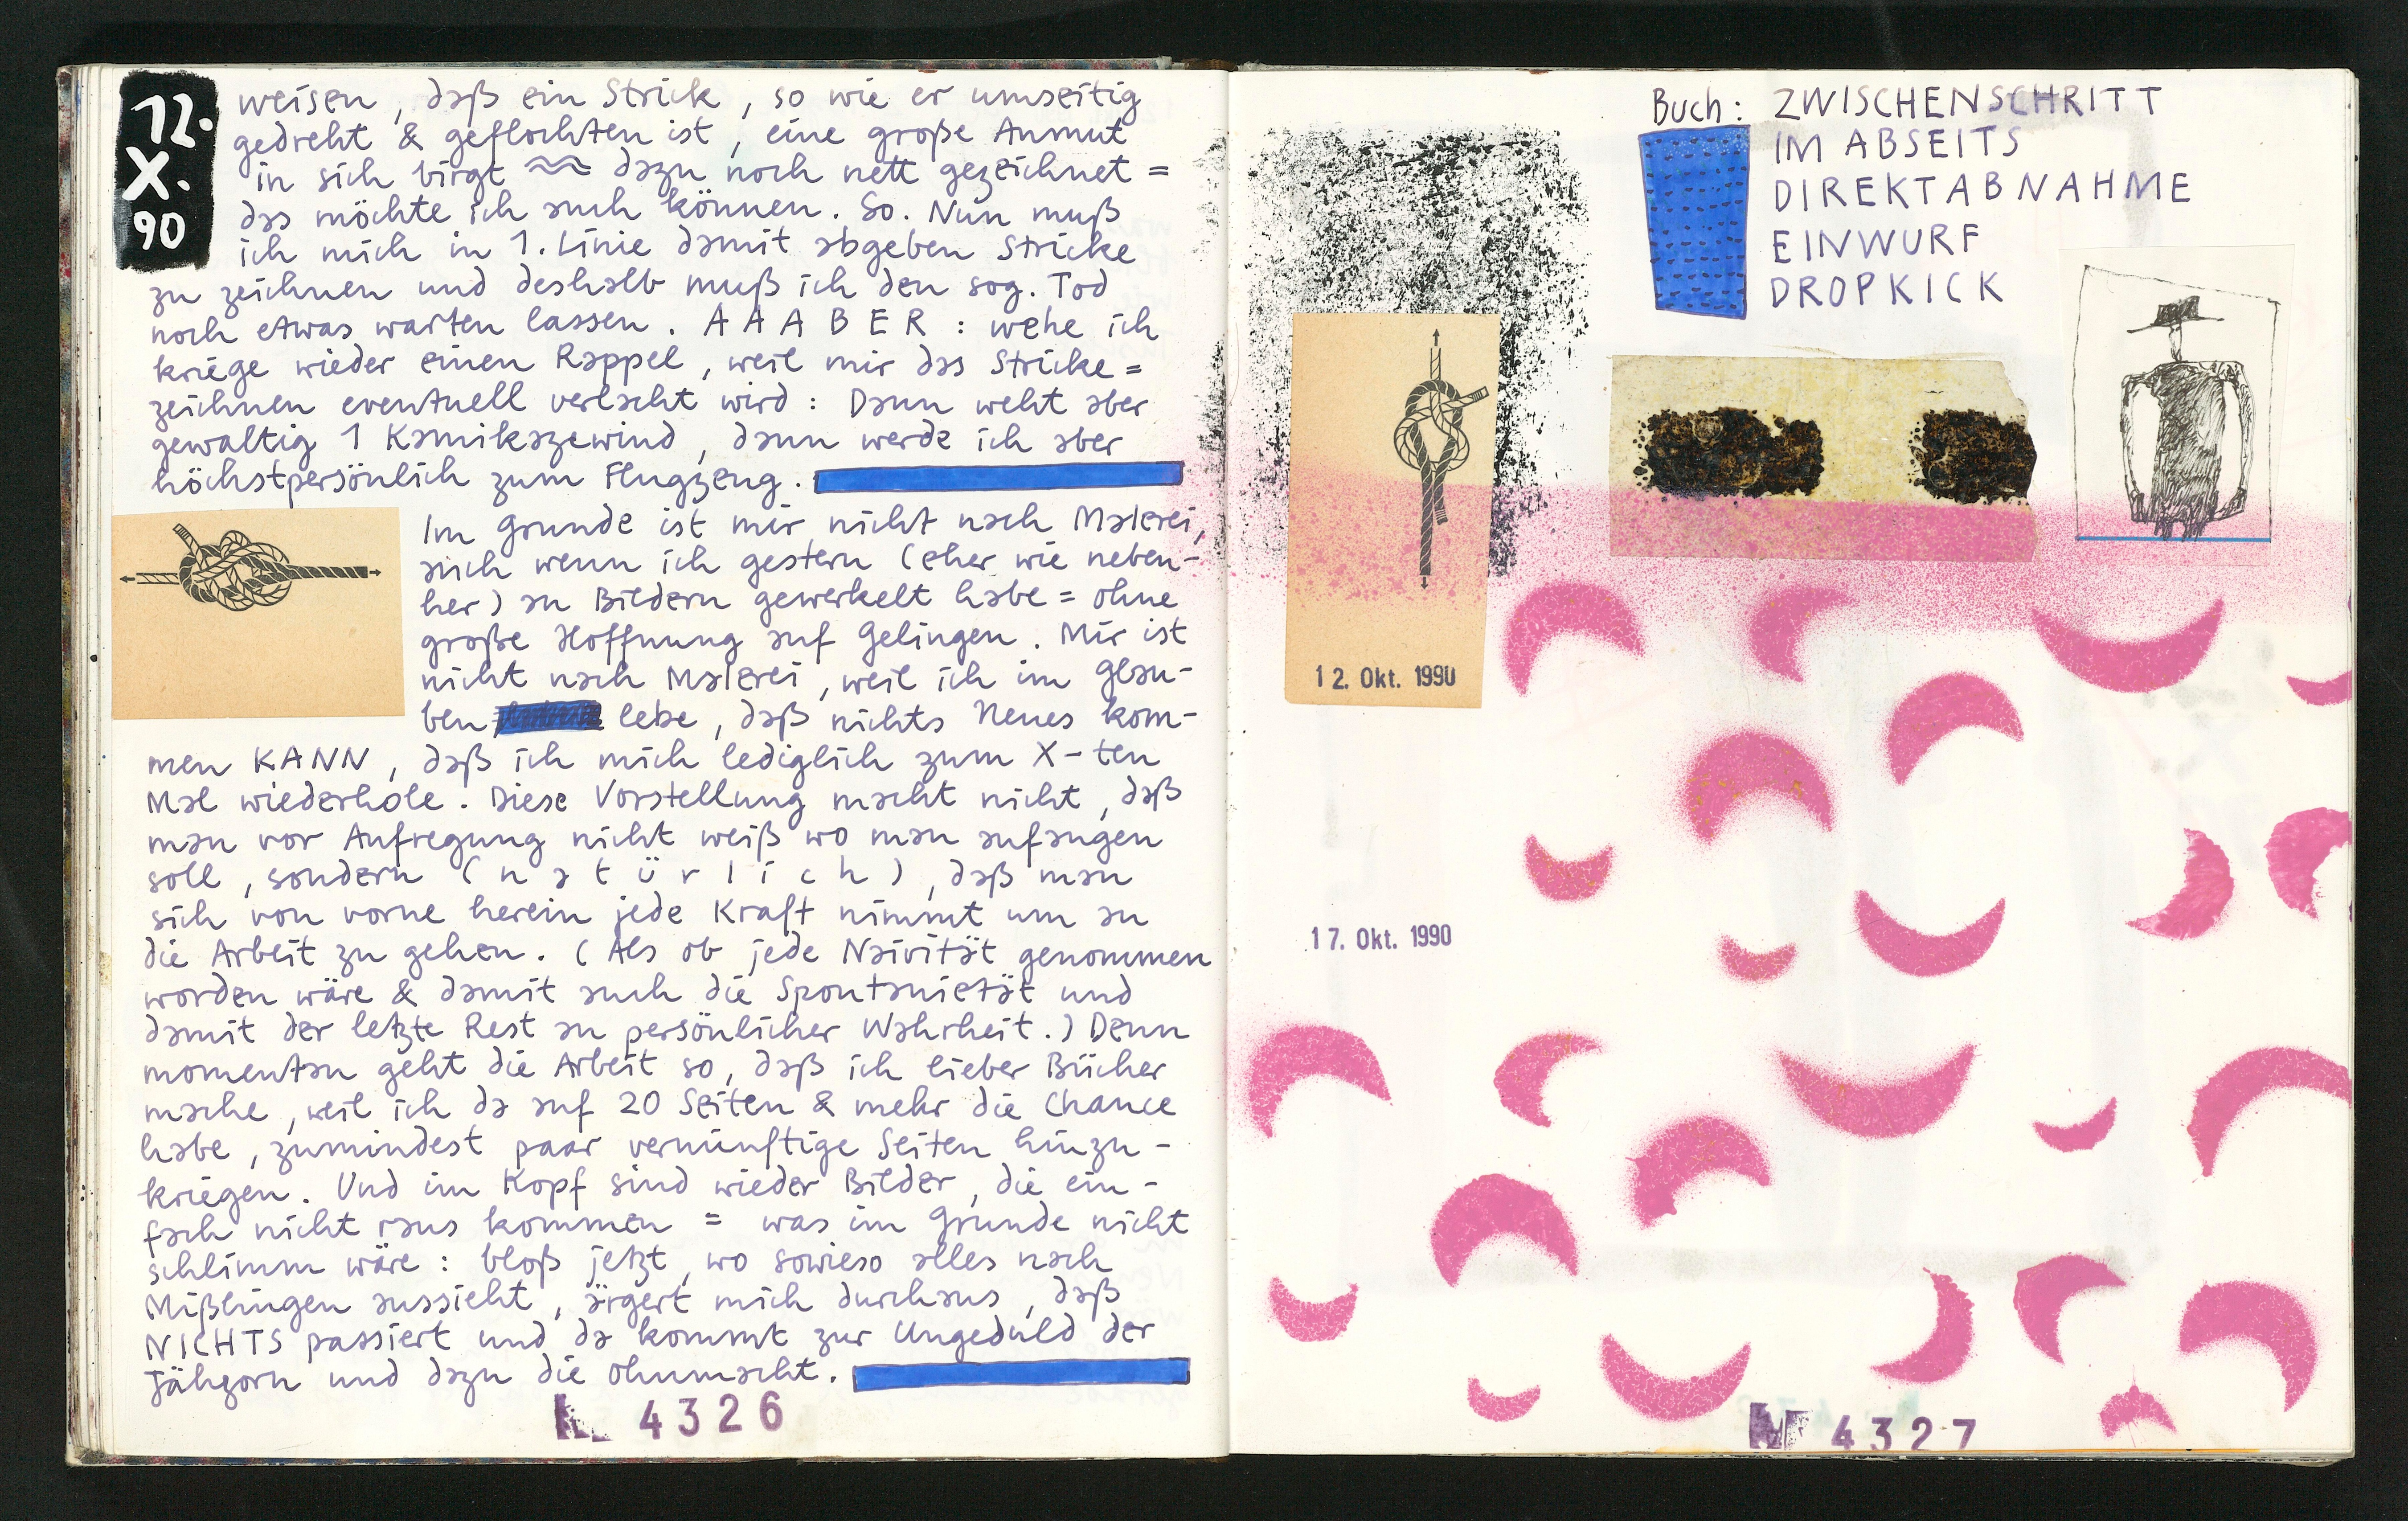 12.
X.
90
weisen, daß ein Strick, so wie er umseitig
gedreht & geflochten ist, eine große Anmut
in sich birgt ≈ dazu noch nett gezeichnet =
das möchte ich auch können. So. Nun muß
ich mich in 1. Linie damit abgeben Stricke
zu zeichnen und deshalb muß ich den sog. Tod
noch etwas warten lassen. AAABER: wehe ich
kriege wieder einen Rappel, weil mir das Stricke=
zeichnen eventuell verlacht wird: Dann weht aber
gewaltig 1 Kamikazewind, dann werde ich aber
höchstpersönlich zum Flugzeug.
Im Grunde ist mir nicht nach Malerei,
auch wenn ich gestern (eher wie neben-
her) an Bildern gewerkelt habe = ohne
große Hoffnung auf Gelingen. Mir ist
nicht nach Malerei, weil ich im Glau-
ben lebe, daß nichts Neues kom-
men KANN, daß ich mich lediglich zum X-ten
Mal wiederhole. Diese Vorstellung macht nicht, daß
man vor Aufregung nicht weiß wo man anfangen
soll, sondern (natürlich), daß man
sich von vorne herein jede Kraft nimmt um an
die Arbeit zu gehen. (Als ob jede Naivität genommen
worden wäre & damit auch die Spontanietät und
damit der letzte Rest an persönlicher Wahrheit.) Denn
momentan geht die Arbeit so, daß ich lieber Bücher
mache, weil ich da auf 20 Seiten & mehr die Chance
habe, zumindest paar vernünftige Seiten hinzu-
kriegen. Und im Kopf sind wieder Bilder, die ein-
fach nicht raus kommen = was im Grunde nicht
schlimm wäre: bloß jetzt, wo sowieso alles nach
Mißlingen aussieht, ärgert mich durchaus, daß
NICHTS passiert und da kommt zur Ungeduld der
Jähzorn und dazu die Ohnmacht.
4326
Buch: ZWISCHENSCHRITT
IM ABSEITS
DIREKTABNAHME
EINWURF
DROPKICK
12. Okt. 1990
17. Okt. 1990
4327